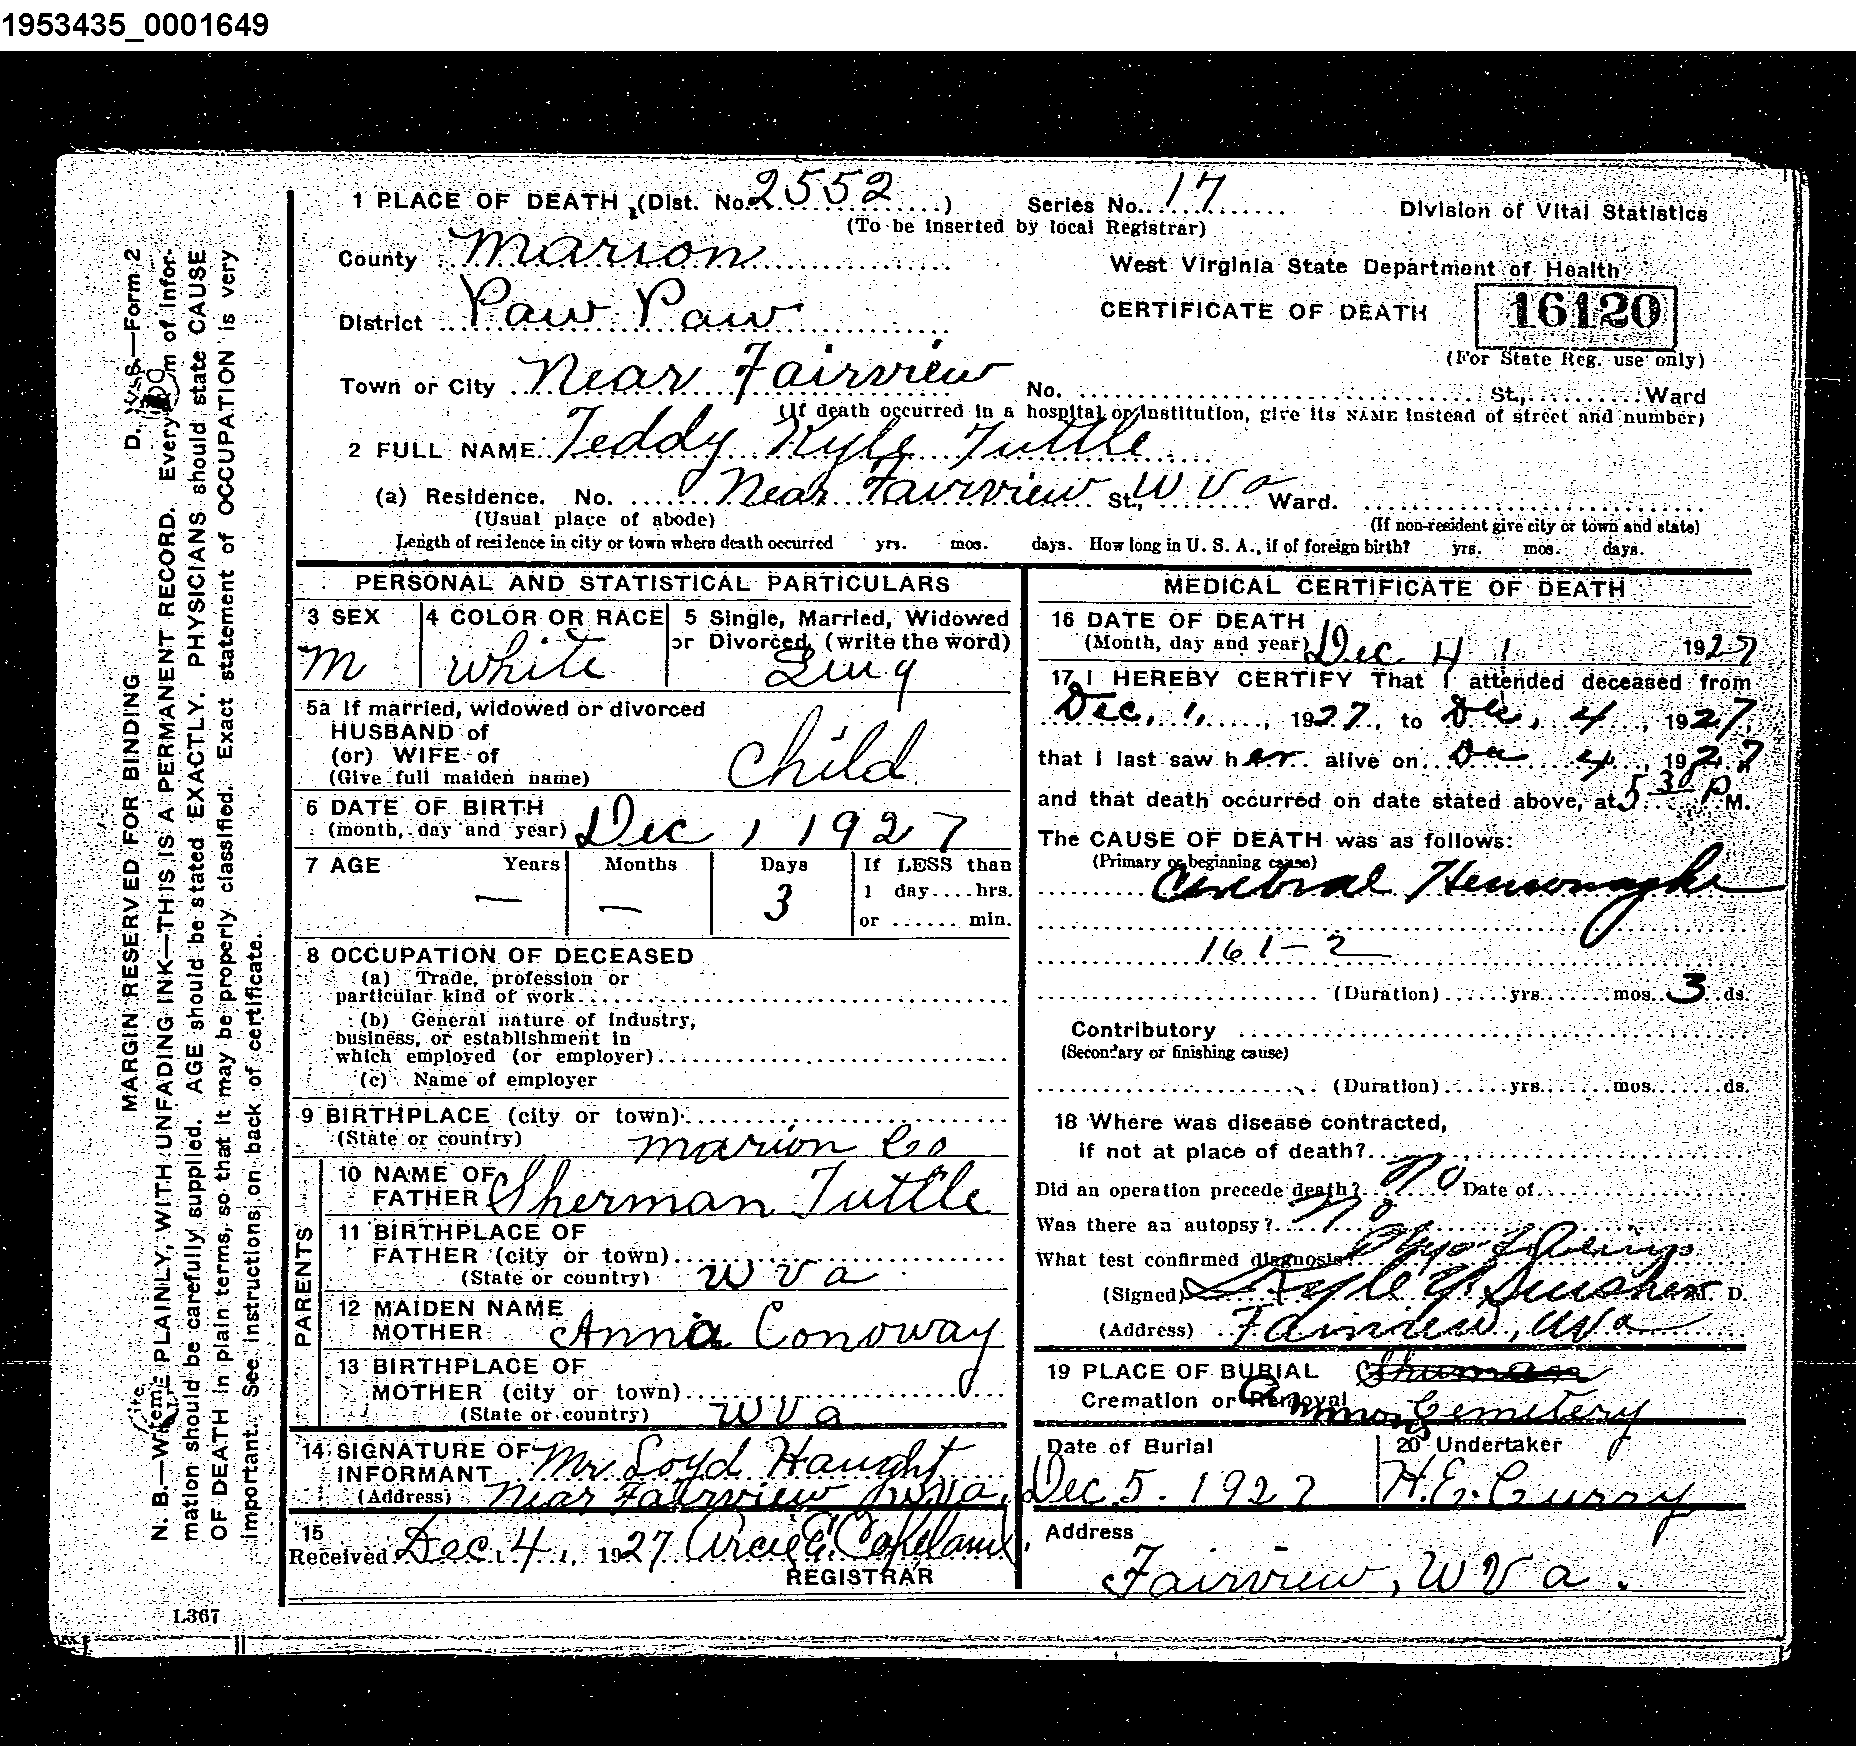 1953435_0001649
1 PLACE OF DEATH (Dist. No. 2552 ) Series No. 17 Division of Vital Statistics
(To be inserted by local Registrar)
County Marion West Virginia State Department of Health
District Paw Paw CERTIFICATE OF DEATH 16120
(For State Reg. use only)
Town or City Near Fairview No. St., Ward
(If death occurred in a hospital or institution, give its NAME instead of street and number)
2 FULL NAME Teddy Kyle Tuttle
(a) Residence. No. Near Fairview St., W Va Ward.
(Usual place of abode) (If non-resident give city or town and state)
Length of residence in city or town where death occurred yrs. mos. days. How long in U. S. A., if of foreign birth? yrs. mos. days.
PERSONAL AND STATISTICAL PARTICULARS
3 SEX 4 COLOR OR RACE 5 Single, Married, Widowed
or Divorced, (write the word)
M White Sing
5a If married, widowed or divorced
HUSBAND of
(or) WIFE of
(Give full maiden name) Child
6 DATE OF BIRTH
(month, day and year) Dec 1 1927
7 AGE Years Months Days If LESS than
— — 3 1 day....hrs.
or ...... min.
8 OCCUPATION OF DECEASED
(a) Trade, profession or
particular kind of work
(b) General nature of industry,
business, or establishment in
which employed (or employer)
(c) Name of employer
9 BIRTHPLACE (city or town)
(State or country) Marion Co
PARENTS
10 NAME OF
FATHER Sherman Tuttle
11 BIRTHPLACE OF
FATHER (city or town)
(State or country) W Va
12 MAIDEN NAME
MOTHER Anna Conoway
13 BIRTHPLACE OF
MOTHER (city or town)
(State or country) W Va
14 SIGNATURE OF
INFORMANT Mr Loyd Haught
(Address) Near Fairview W Va.
15
Received Dec. 4, 1927 Copeland
REGISTRAR
MEDICAL CERTIFICATE OF DEATH
16 DATE OF DEATH
(Month, day and year) Dec 4 1927
17 I HEREBY CERTIFY That I attended deceased from
Dec. 1, 1927, to Dec. 4, 1927,
that I last saw her alive on Dec 4, 1927
and that death occurred on date stated above, at 5 30 P M.
The CAUSE OF DEATH was as follows:
(Primary or beginning cause)
Cerebral Hemorraghe
161-2
(Duration) yrs. mos. 3 ds.
Contributory
(Secondary or finishing cause)
(Duration) yrs. mos. ds.
18 Where was disease contracted,
if not at place of death?
Did an operation precede death? No Date of
Was there an autopsy? No
What test confirmed diagnosis?
(Signed) Kyle M. D.
(Address) Fairview, W Va
19 PLACE OF BURIAL
Cremation or Removal Cemetery
Date of Burial 20 Undertaker
Dec 5. 1927 H. E. Curry
Address
Fairview, W Va.
MARGIN RESERVED FOR BINDING
D. V. S.—Form 2
N. B.—Write PLAINLY, WITH UNFADING INK—THIS IS A PERMANENT RECORD. Every item of infor-
mation should be carefully supplied. AGE should be stated EXACTLY. PHYSICIANS should state CAUSE
OF DEATH in plain terms, so that it may be properly classified. Exact statement of OCCUPATION is very
important. See instructions on back of certificate.
L367